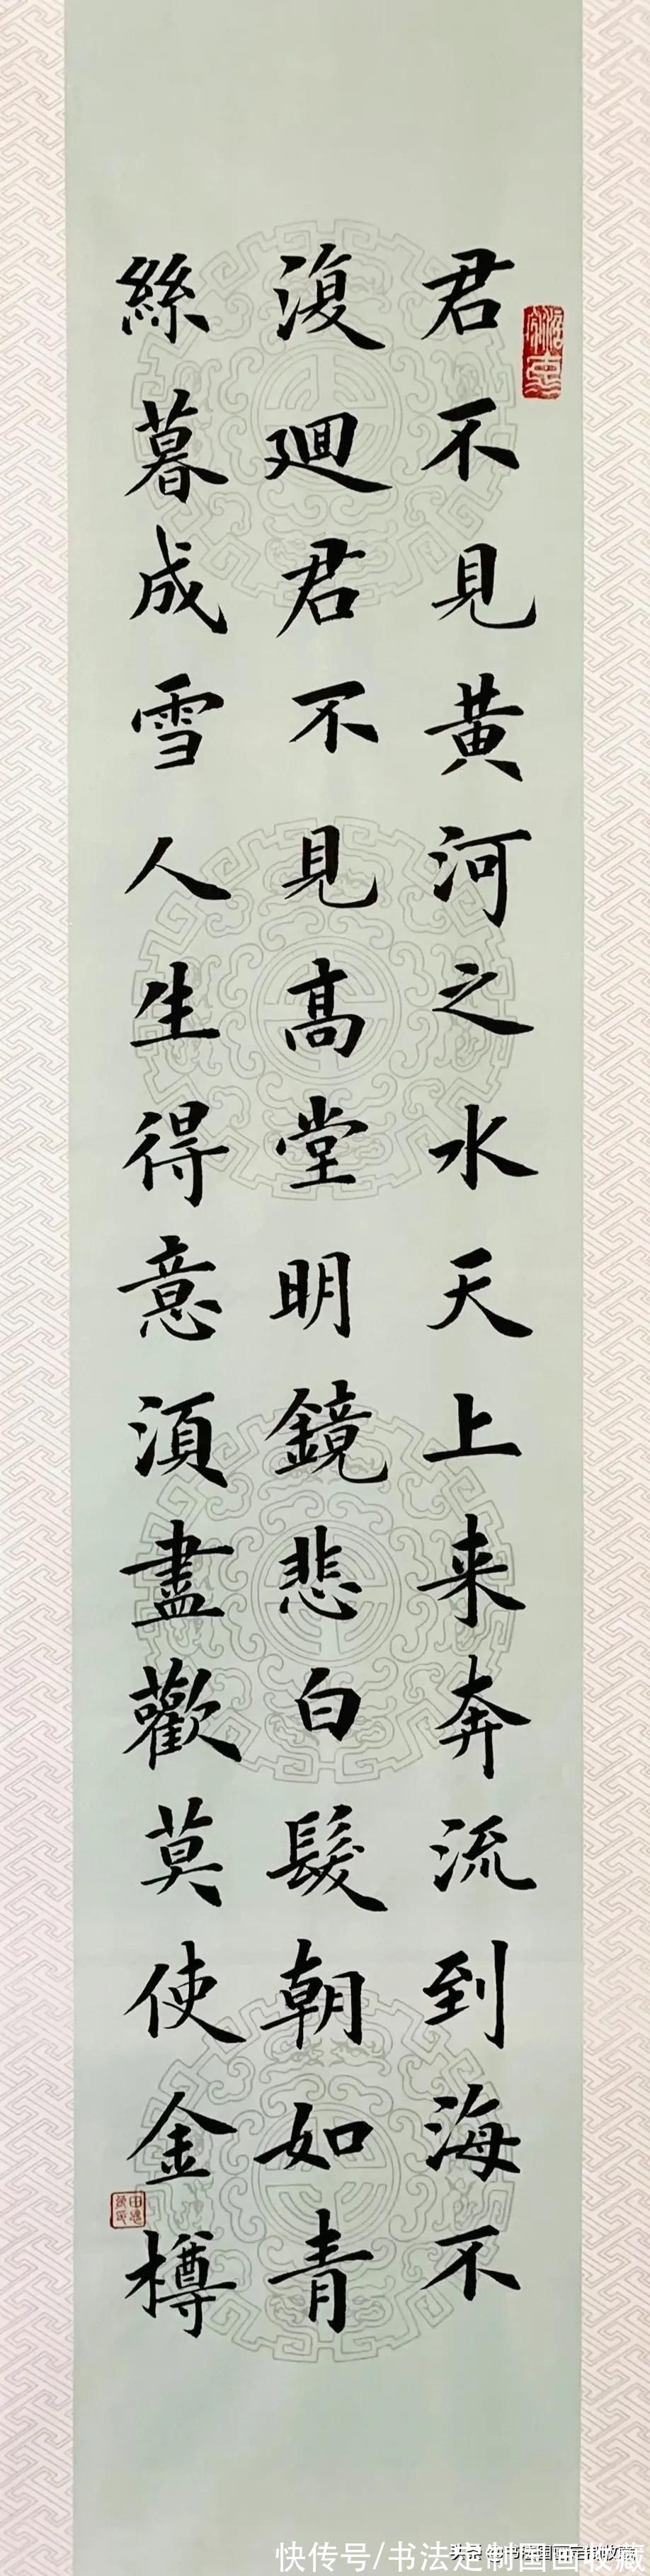 君不見黃河之水天上来奔流到海不
復廻君不見高堂明鏡悲白髮朝如青
絲暮成雪人生得意須盡歡莫使金樽
快传号/书法定制国画收藏